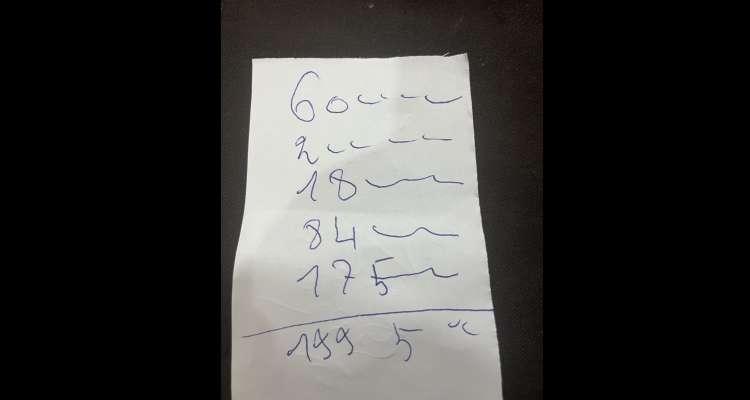 60
2
18
84
175
199 5